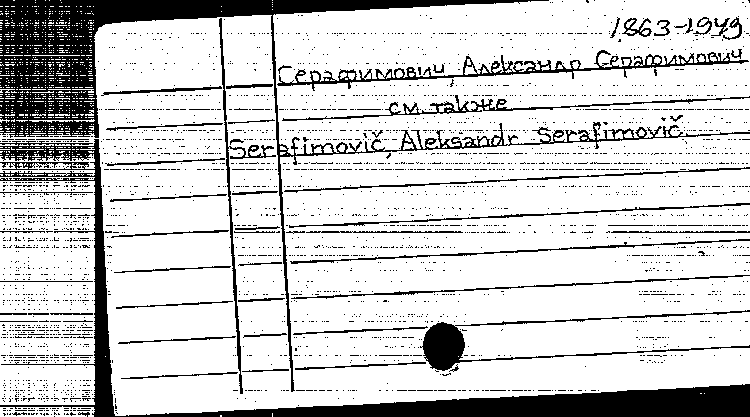 1863-1949
Серафимович, Александр Серафимович
см. также
Serafimovič, Aleksandr Serafimovič